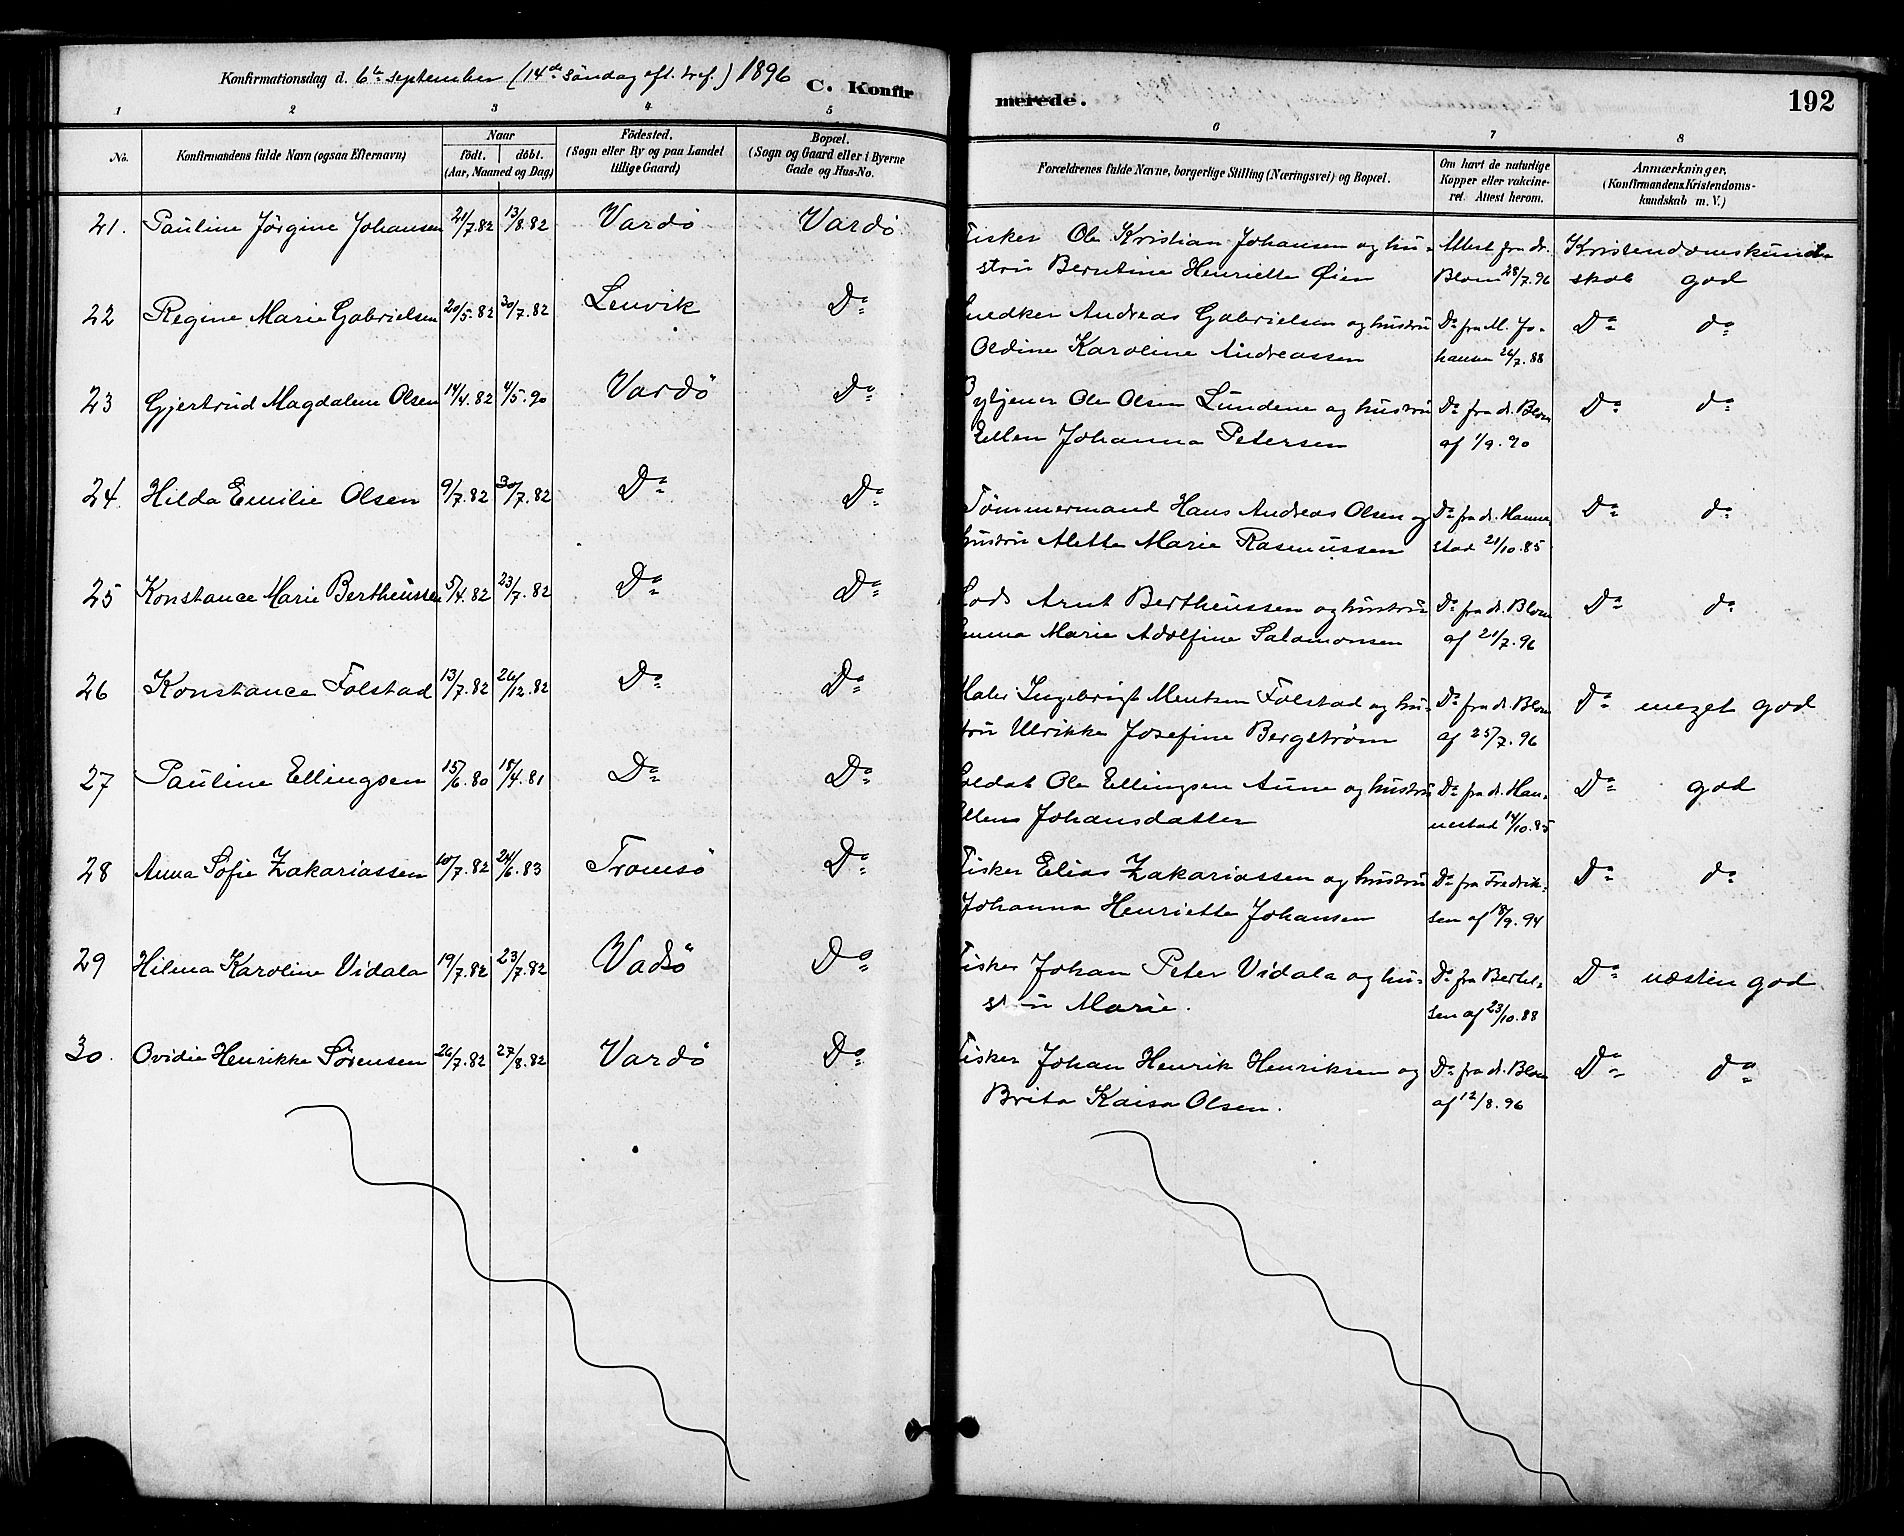 Konfirmationsdag d. 6te september (14de søndag eft. tref.) 1896 C. Konfir
merede. 192
1 2 3 4 5
6 7 8
No. Konfirmandens fulde Navn (ogsaa Efternavn) Naar Födested. Bopæl.
födt. döbt. (Sogn eller By og paa Landet (Sogn og Gaard eller i Byerne
(Aar, Maaned og Dag) tillige Gaard) Gade og Hus-No.
Forældrenes fulde Navne, borgerlige Stilling (Næringsvei) og Bopæl. Om havt de naturlige Anmærkninger,
Kopper eller vakcine- (Konfirmandens Kristendoms-
ret. Attest herom. kundskab m. V.)
21. Pauline Jørgine Johansen 21/7.82 13/8.82 Vardö Vardö
Fisker Ole Kristian Johansen og hu- Attest fra dr. Kristendomskund-
stru Berntine Henriette Øien Blom 28/7.96 skab god
22 Regine Marie Gabrielsen 20/5.82 30/7.82 Lenvik Do
Snedker Andreas Gabrielsen og hustru Do fra M. Jo- Do do
Oldine Karoline Andreassen hansen 26/7.88
23 Gjertrud Magdalene Olsen 14/4.82 4/5.90 Vardö Do
Ole Olsen Lundene og hustru Do fra dr. Blom Do do
Ellen Johanna Petersen af 1/9.90
24. Hilda Emilie Olsen 9/7.82 30/7.82 Do Do
Tömmermand Hans Andreas Olsen og Do fra dr. Hanne Do do
hustru Alette Marie Rasmussen stad 21/10.85
25 Konstance Marie Bertheussen 5/4.82 23/7.82 Do Do
Lods Arnt Bertheussen og hustru Do fra dr. Blom Do do
Emma Marie Adolfine Salamonsen af 21/7.96
26 Konstance Folstad 13/7.82 26/12.82 Do Do
Maler Ingebrigt Mentsen Folstad og hu- Do fra dr. Blom Do meget god
stru Ulrikke Josefine Bergstrøm af 25/7.96
27 Pauline Ellingsen 15/6.80 18/4.81 Do Do
Soldat Ole Ellingsen Aune og hustru Do fra dr. Han- Do god
Ellens Johansdatter nestad 14/10.85
28 Anna Sofie Zakariassen 10/7.82 24/6.83 Tromsö Do
Fisker Elias Zakariassen og hustru Do fra Fredrik- Do do
Johanna Henriette Johansen sen af 18/9.94
29 Hilma Karoline Vidala 19/7.82 23/7.82 Vadsö Do
Fisker Johan Peter Vidala og hu- Do fra Bertel- Do næsten god
stru Marie. sen af 23/10.88
30. Ovidie Henrikke Sørensen 26/7.82 27/8.82 Vardö Do
Fisker Johan Henrik Henriksen og Do fra dr. Blom Do do
Brita Kaisa Olsen. af 12/8.96